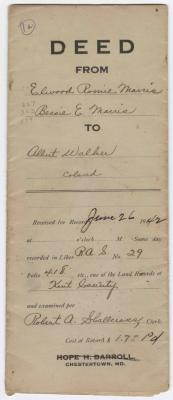 12
DEED
FROM
Elwood Romie Morris
Bessie E. Morris
TO
Albert Walker
Colored
Received for Record June 26 1942
at o'clock M. Same day
recorded in Liber R.A.S. No. 29
Folio 418 etc., one of the Land Records of
Kent County
and examined per
Robert A. Clerk
Cost of Record $ 1.75 Pd
HOPE H. BARROLL
CHESTERTOWN, MD.